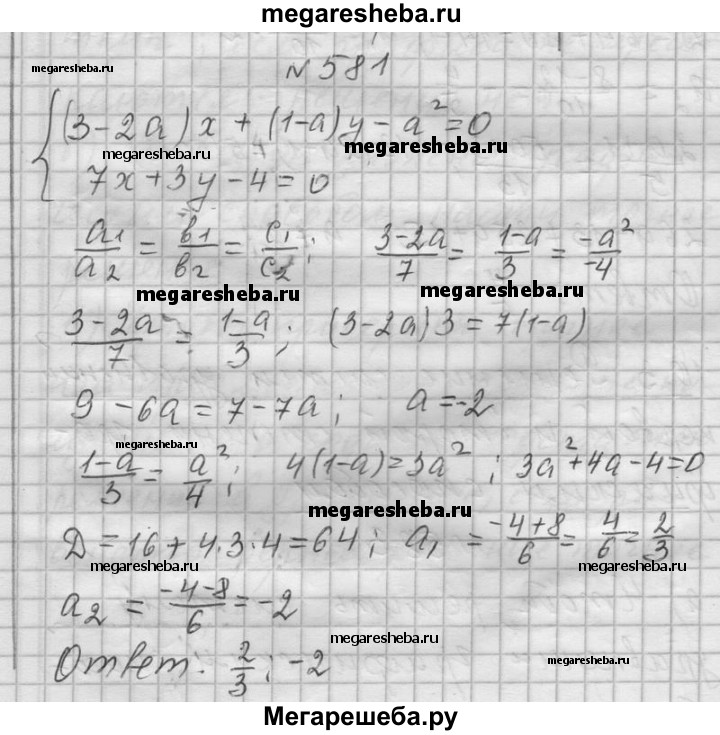 megaresheba.ru
№ 581
megaresheba.ru
(3-2a)x + (1-a)y - a² = 0
megaresheba.ru megaresheba.ru
7x + 3y - 4 = 0
a₁/a₂ = в₁/в₂ = c₁/c₂; (3-2a)/7 = (1-a)/3 = -a²/-4
megaresheba.ru megaresheba.ru
(3-2a)/7 = (1-a)/3; (3-2a)3 = 7(1-a)
9 - 6a = 7 - 7a; a = -2
megaresheba.ru
(1-a)/3 = a²/4; 4(1-a) = 3a²; 3a² + 4a - 4 = 0
megaresheba.ru
Д = 16 + 4·3·4 = 64; a₁ = (-4+8)/6 = 4/6 = 2/3
megaresheba.ru megaresheba.ru
a₂ = (-4-8)/6 = -2
megaresheba.ru
Ответ: 2/3; -2
megaresheba.ru
Мегарешеба.ру